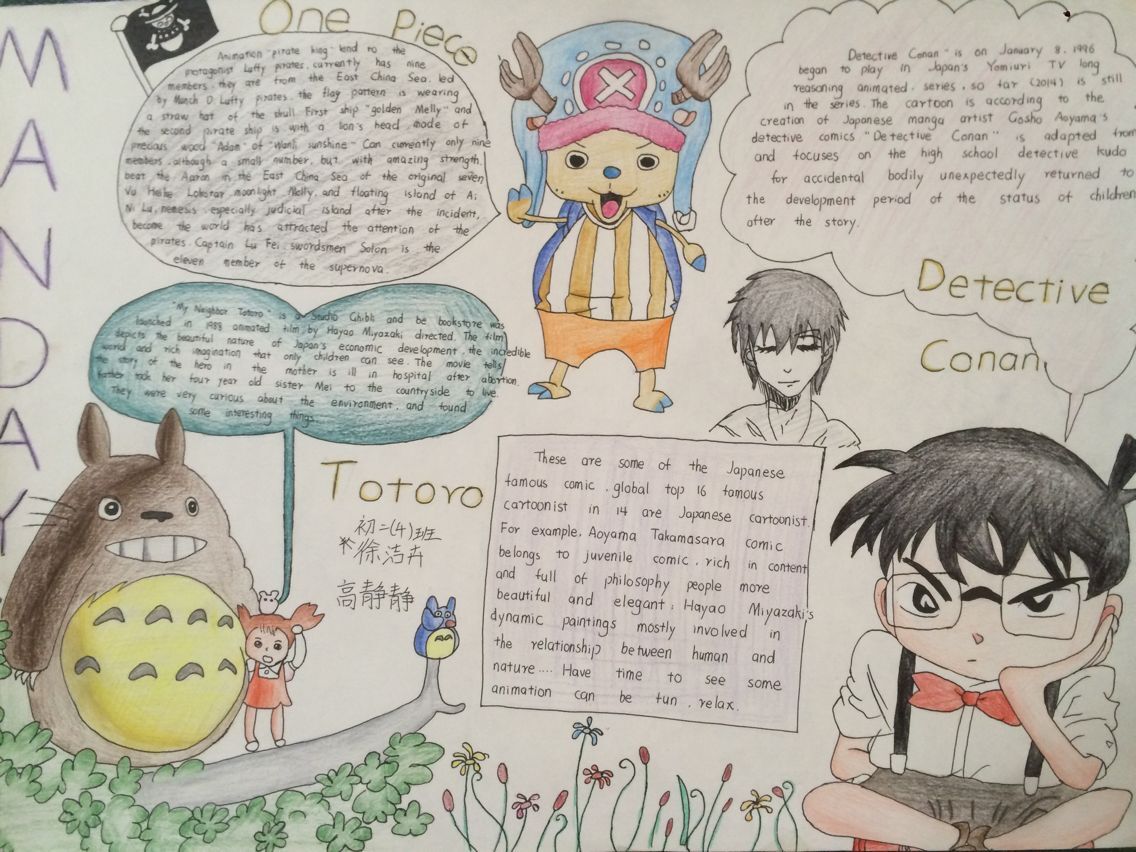 MANDAY
One Piece
Animation "pirate king" lend to the
protagonist Luffy pirates, currently has nine
members. they are from the East China Sea. led
by Munch D. Luffy pirates. the flag pattern is wearing
a straw hat of the skull. First ship "golden Melly" and
the second pirate ship is with a lion's head, made of
precious wood "Adam" of "Wanli sunshine" Can currently only nine
members, although a small number, but with amazing strength,
beat the Aaron in the East China Sea of the original seven
Wu Heike Lokstar, moonlight Melly, and floating island of Ai
Ni Lu, nemesis, especially judicial island after the incident,
become the world has attracted the attention of the
pirates. Captain Lu Fei, swordsmen Solon is the
eleven member of the supernova.
Detective Conan" is on January 8, 1996
began to play in Japan's Yomiuri TV long
reasoning animated. series, so far (2014) is still
in the series. The cartoon is according to the
creation of Japanese manga artist Gosho Aoyama's
detective comics "Detective Conan" is adapted from
and focuses on the high school detective Kudo
for accidental bodily unexpectedly returned to
the development period of the status of children
after the story.
Detective
Conan
"My Neighbor Totoro" is a Studio Ghibli and be bookstore was
launched in 1988 animated film by Hayao Miyazaki directed. The film
depicts the beautiful nature of Japan's economic development, the incredible
world and rich imagination that only children can see. The movie tells
the story of the hero in the mother is ill in hospital after abortion.
father took her four year old sister Mei to the countryside to live.
They were very curious about the environment, and found
some interesting things.
Totoro
初二(4)班
徐洁卉
高静静
These are some of the Japanese
famous comic, global top 16 famous
cartoonist in 14 are Japanese cartoonist.
For example, Aoyama Takamasara comic
belongs to juvenile comic, rich in content
and full of philosophy people more
beautiful and elegant; Hayao Miyazaki's
dynamic paintings mostly involved in
the relationship between human and
nature.... Have time to see some
animation can be fun, relax.